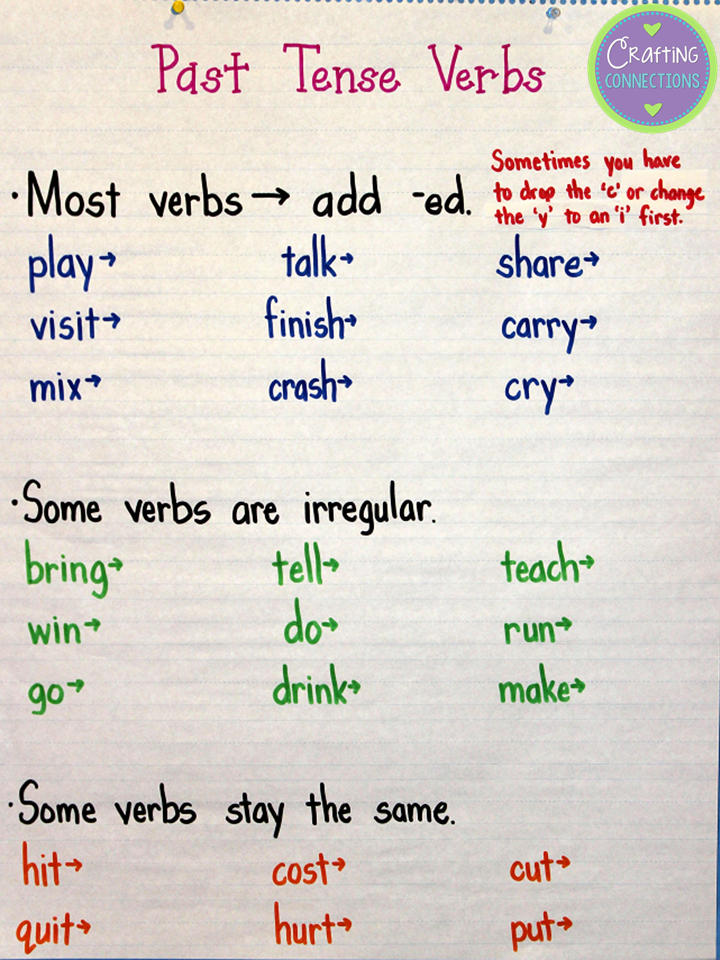 Past Tense Verbs
Crafting
CONNECTIONS
·Most verbs→ add -ed.
Sometimes you have
to drop the 'e' or change
the 'y' to an 'i' first.
play→ talk→ share→
visit→ finish→ carry→
mix→ crash→ cry→
·Some verbs are irregular.
bring→ tell→ teach→
win→ do→ run→
go→ drink→ make→
·Some verbs stay the same.
hit→ cost→ cut→
quit→ hurt→ put→